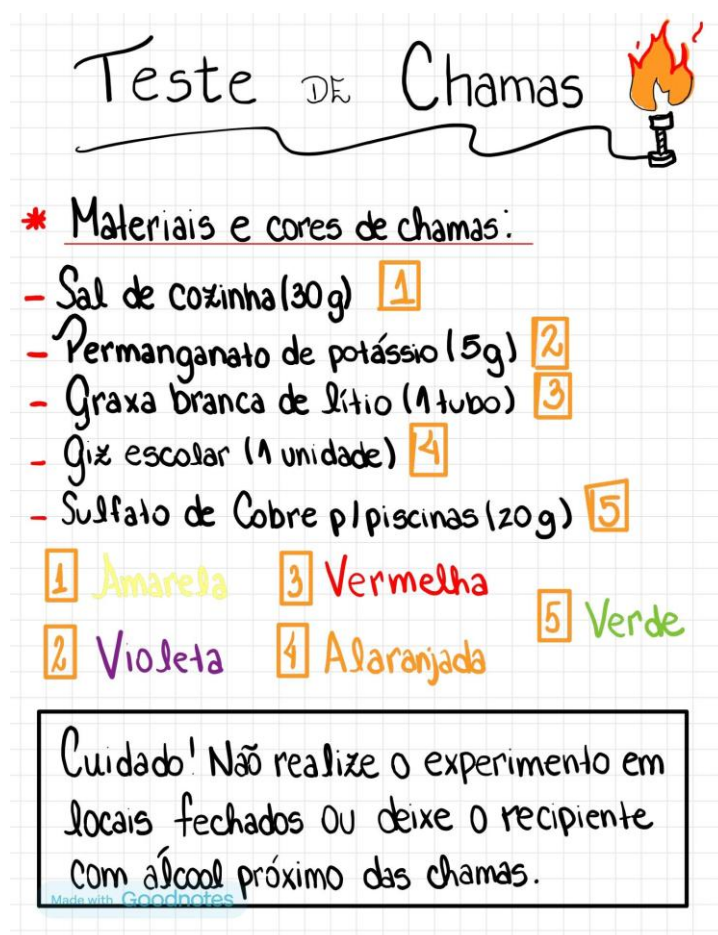 Teste DE Chamas
* Materiais e cores de chamas:
- Sal de cozinha (30g) 1
- Permanganato de potássio (5g) 2
- Graxa branca de lítio (1 tubo) 3
- Giz escolar (1 unidade) 4
- Sulfato de Cobre p/piscinas (20g) 5
1 Amarela
2 Violeta
3 Vermelha
4 Alaranjada
5 Verde
Cuidado! Não realize o experimento em
locais fechados ou deixe o recipiente
com álcool próximo das chamas.
Made with Goodnotes